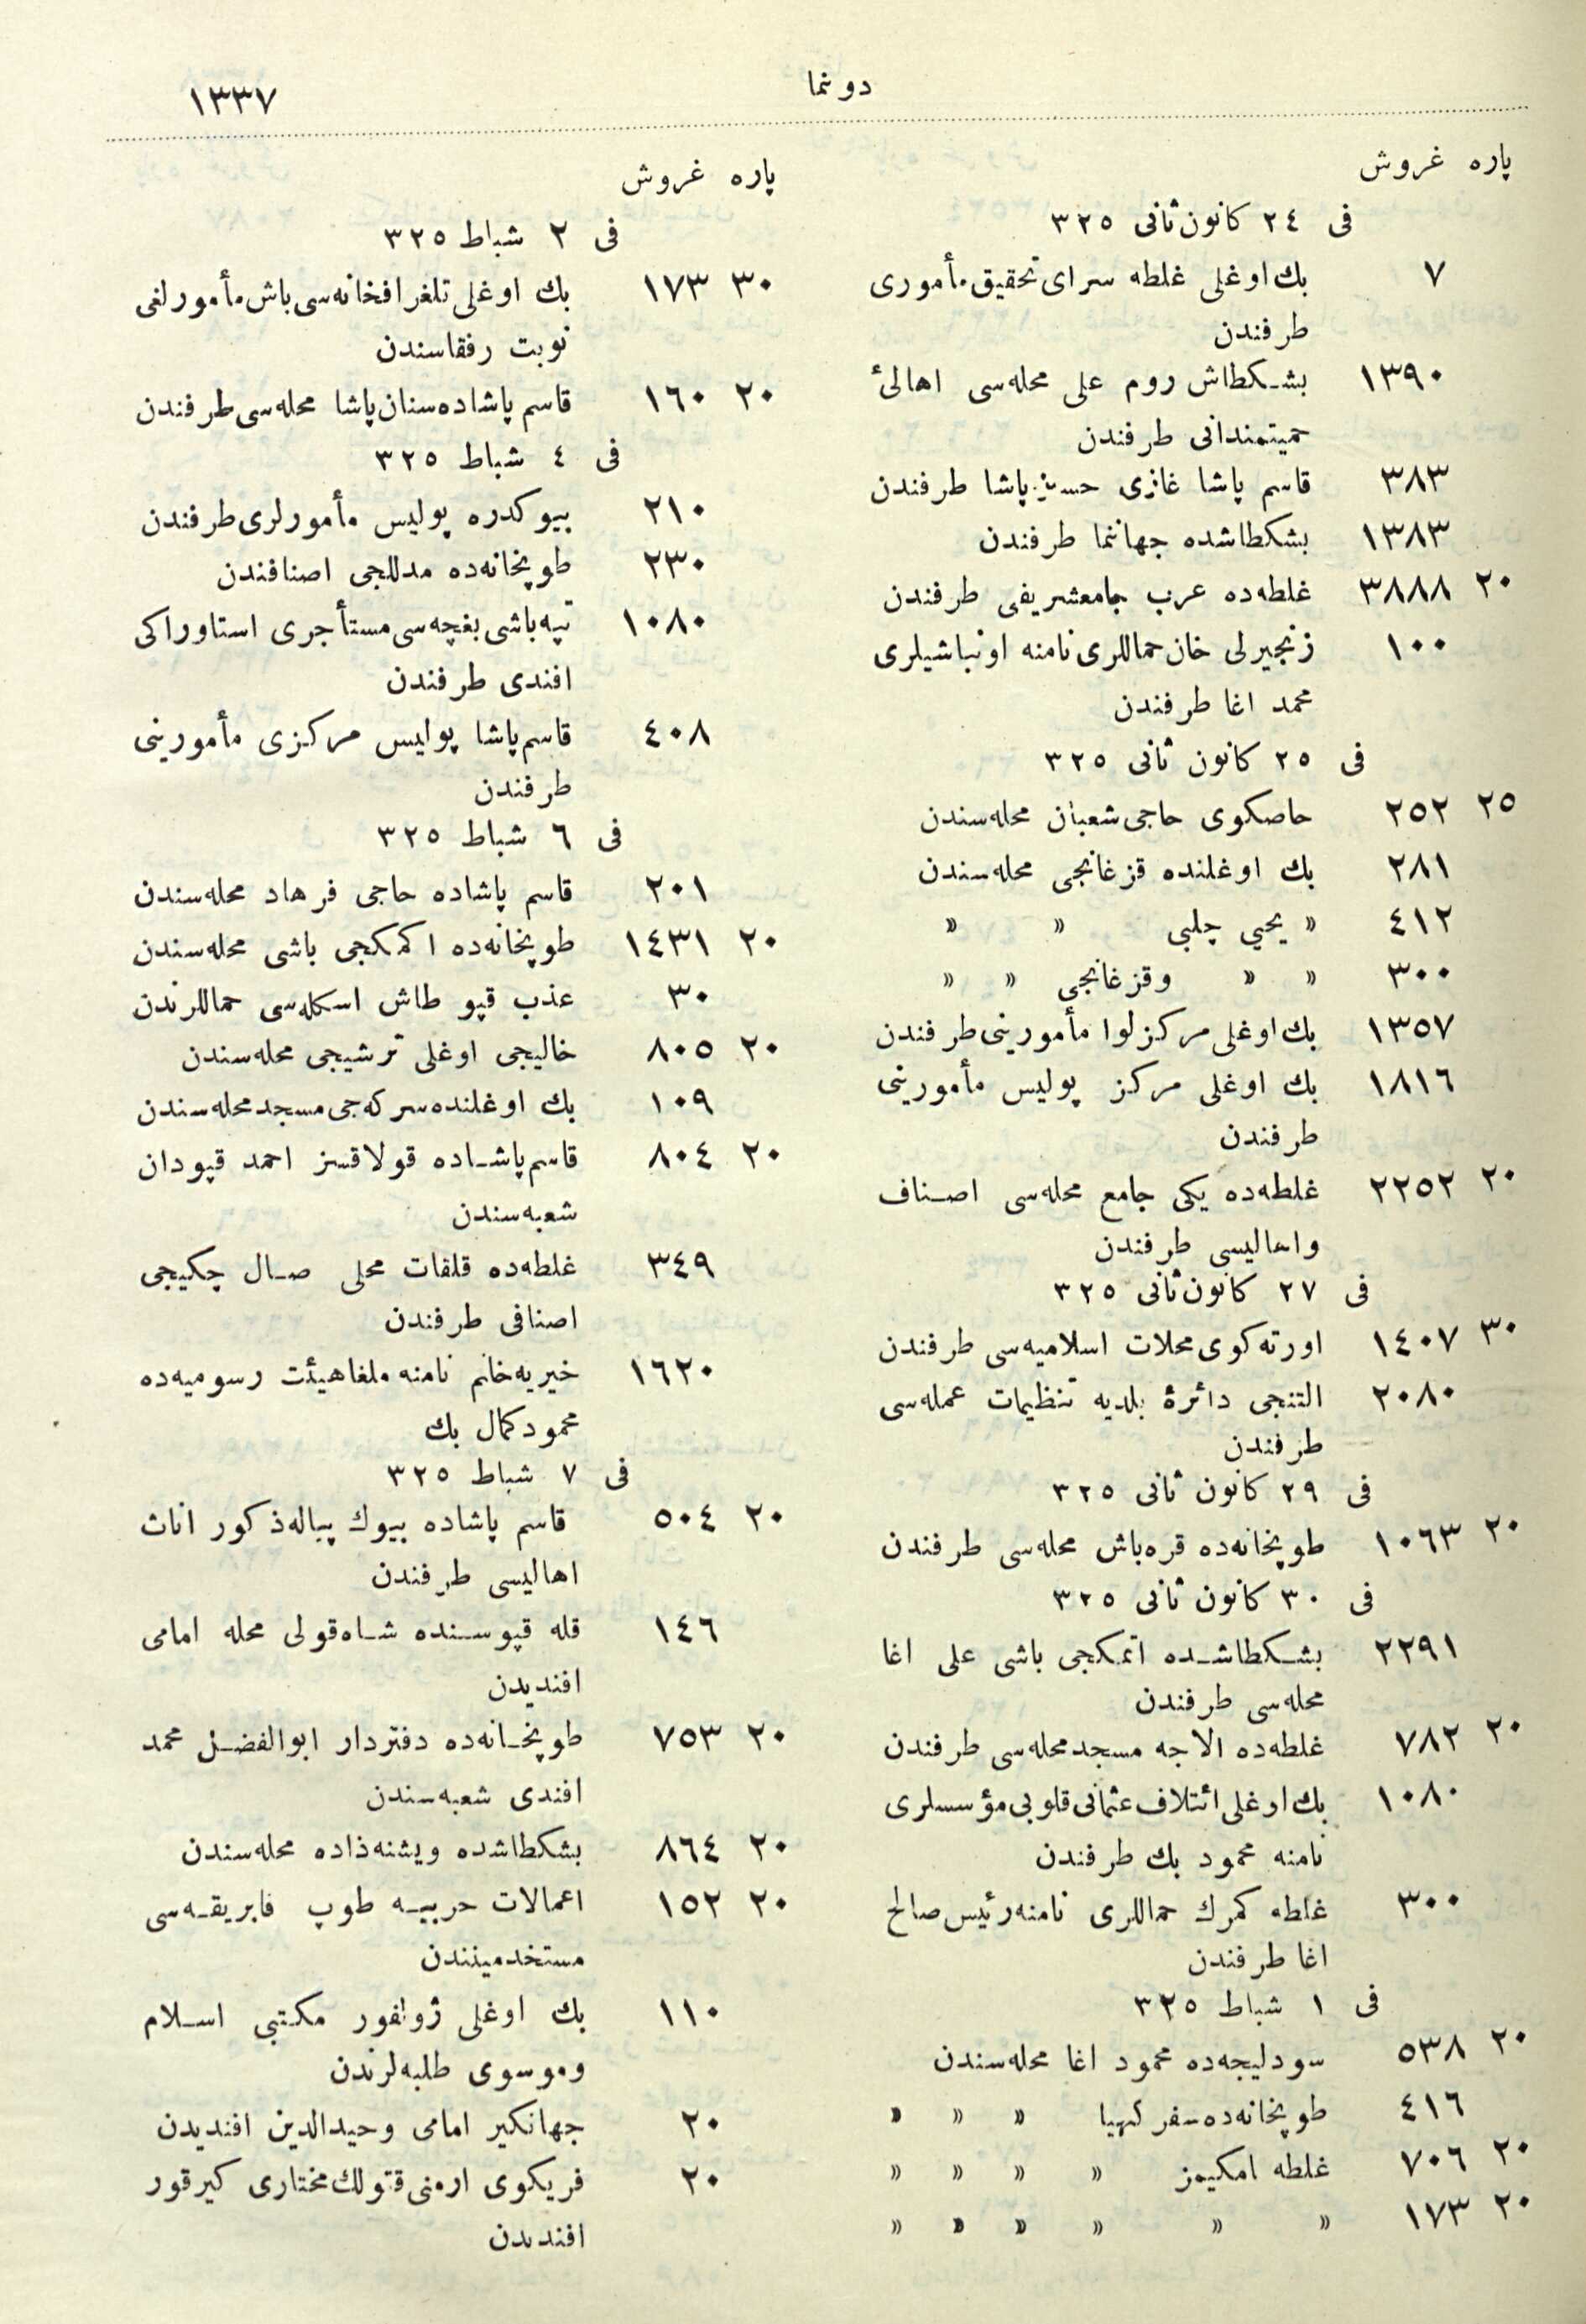 دونما
١٣٣٧
پاره غروش
فی ٢٤ كانون ثانی ٣٢٥
٧ بك اوغلی غلطه سرای تحقیق مأموری
طرفندن
١٣٩٠ بشكطاش روم علی محله‌سی اهالیٔ
حمیتمندانی طرفندن
٣٨٣ قاسم پاشا غازی حسن پاشا طرفندن
١٣٨٣ بشكطاشده جهاننما طرفندن
٢٠ ٣٨٨٨ غلطه‌ده عرب جامعشریفی طرفندن
١٠٠ زنجیرلی خان حماللری نامنه اونباشیلری
محمد اغا طرفندن
فی ٢٥ كانون ثانی ٣٢٥
٢٥ ٢٥٢ حاصكوی حاجی شعبان محله‌سندن
٢٨١ بك اوغلنده قزغانجی محله‌سندن
٤١٢ » یحیی چلبی » »
٣٠٠ » » وقزغانجی » »
١٣٥٧ بك اوغلی مركز لوا مأمورینی طرفندن
١٨١٦ بك اوغلی مركز پولیس مأمورینی
طرفندن
٢٠ ٢٢٥٢ غلطه‌ده یكی جامع محله‌سی اصناف
واهالیسی طرفندن
فی ٢٧ كانون ثانی ٣٢٥
٣٠ ١٤٠٧ اورته‌كوی محلات اسلامیه‌سی طرفندن
٢٠٨٠ التنجی دائرهٔ بلدیه تنظیمات عمله‌سی
طرفندن
فی ٢٩ كانون ثانی ٣٢٥
٢٠ ١٠٦٣ طوپخانه‌ده قره‌باش محله‌سی طرفندن
فی ٣٠ كانون ثانی ٣٢٥
٢٢٩١ بشكطاشده اتمكجی باشی علی اغا
محله‌سی طرفندن
٢٠ ٧٨٢ غلطه‌ده الاجه مسجد محله‌سی طرفندن
١٠٨٠ بك اوغلی ائتلاف عثمانی قلوبی مؤسسلری
نامنه محمود بك طرفندن
٣٠٠ غلطه كمرك حماللری نامنه رئیس صالح
اغا طرفندن
فی ١ شباط ٣٢٥
٢٠ ٥٣٨ سودلیجه‌ده محمود اغا محله‌سندن
٤١٦ طوپخانه‌ده سفر كهیا » » »
٢٠ ٧٠٦ غلطه امكیمز » » » »
٢٠ ١٧٣ » » » » » »
پاره غروش
فی ٢ شباط ٣٢٥
٣٠ ١٧٣ بك اوغلی تلغرافخانه‌سی باش مأمورلغی
نوبت رفقاسندن
٢٠ ١٦٠ قاسم پاشاده سنان پاشا محله‌سی طرفندن
فی ٤ شباط ٣٢٥
٢١٠ بیوكدره پولیس مأمورلری طرفندن
٢٣٠ طوپخانه‌ده مدللجی اصنافندن
١٠٨٠ تپه‌باشی بغچه‌سی مستأجری استاوراكی
افندی طرفندن
٤٠٨ قاسم پاشا پولیس مركزی مأمورینی
طرفندن
فی ٦ شباط ٣٢٥
٢٠١ قاسم پاشاده حاجی فرهاد محله‌سندن
٢٠ ١٤٣١ طوپخانه‌ده اكمكجی باشی محله‌سندن
٣٠ عذب قپو طاش اسكله‌سی حماللرندن
٢٠ ٨٠٥ خالیجی اوغلی ترشیجی محله‌سندن
١٠٩ بك اوغلنده سركه‌جی مسجد محله‌سندن
٢٠ ٨٠٤ قاسم پاشاده قولاقسز احمد قپودان
شعبه‌سندن
٣٤٩ غلطه‌ده قلفات محلی صال چكیجی
اصنافی طرفندن
١٦٢٠ خیریه خانم نامنه ملغا هیئت رسومیه‌ده
محمود كمال بك
فی ٧ شباط ٣٢٥
٢٠ ٥٠٤ قاسم پاشاده بیوك پیاله ذكور اناث
اهالیسی طرفندن
١٤٦ قله قپوسنده شاه‌قولی محله امامی
افندیدن
٢٠ ٧٥٣ طوپخانه‌ده دفتردار ابوالفضل محمد
افندی شعبه‌سندن
٢٠ ٨٦٤ بشكطاشده ویشنه‌ذاده محله‌سندن
٢٠ ١٥٢ اعمالات حربیه طوپ فابریقه‌سی
مستخدمیندن
١١٠ بك اوغلی ژوانفور مكتبی اسلام
وموسوی طلبه‌لرندن
٢٠ جهانكیر امامی وحیدالدین افندیدن
٢٠ فریكوی ارمنی قتولك مختاری كیرقور
افندیدن